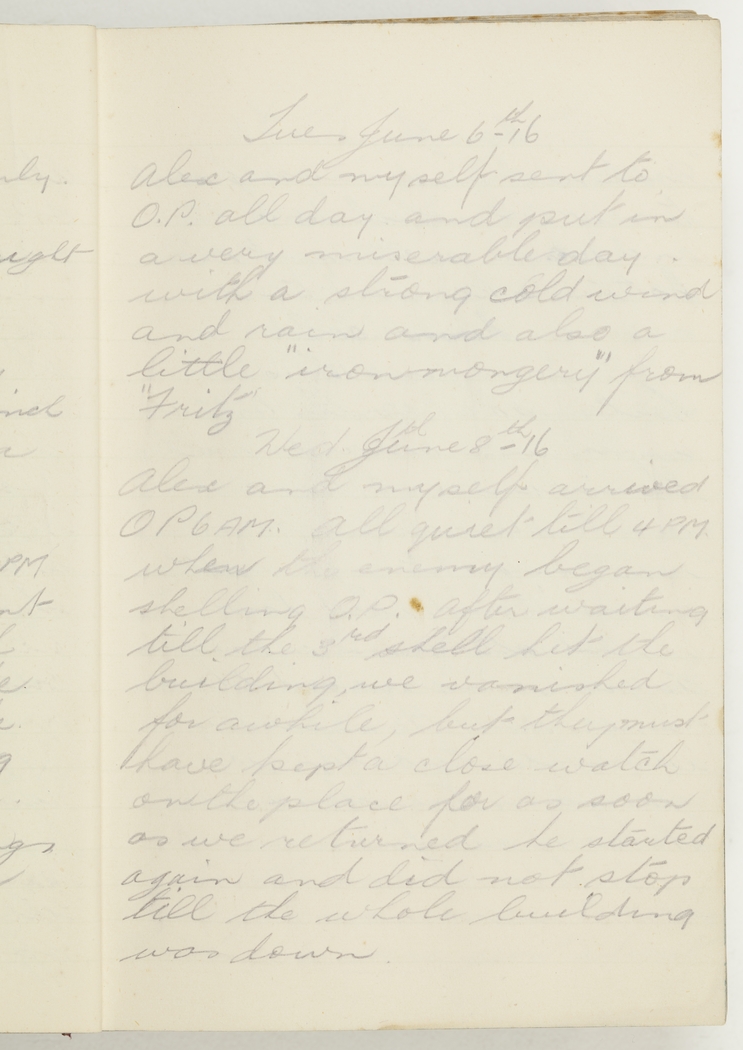 nly.
ught
ind
PM
nt
Tues June 6th-16
Alex and myself sent to
O.P. all day and put in
a very miserable day.
with a strong cold wind
and rain and also a
little "ironmongery" from
"Fritz"
Wed. June 8th-16
Alex and myself arrived
OP 6 AM. All quiet till 4 PM.
when the enemy began
shelling O.P. After waiting
till the 3rd shell hit the
building, we vanished
for awhile, but they must
have kept a close watch
on the place for as soon
as we returned he started
again and did not stop
till the whole building
was down.